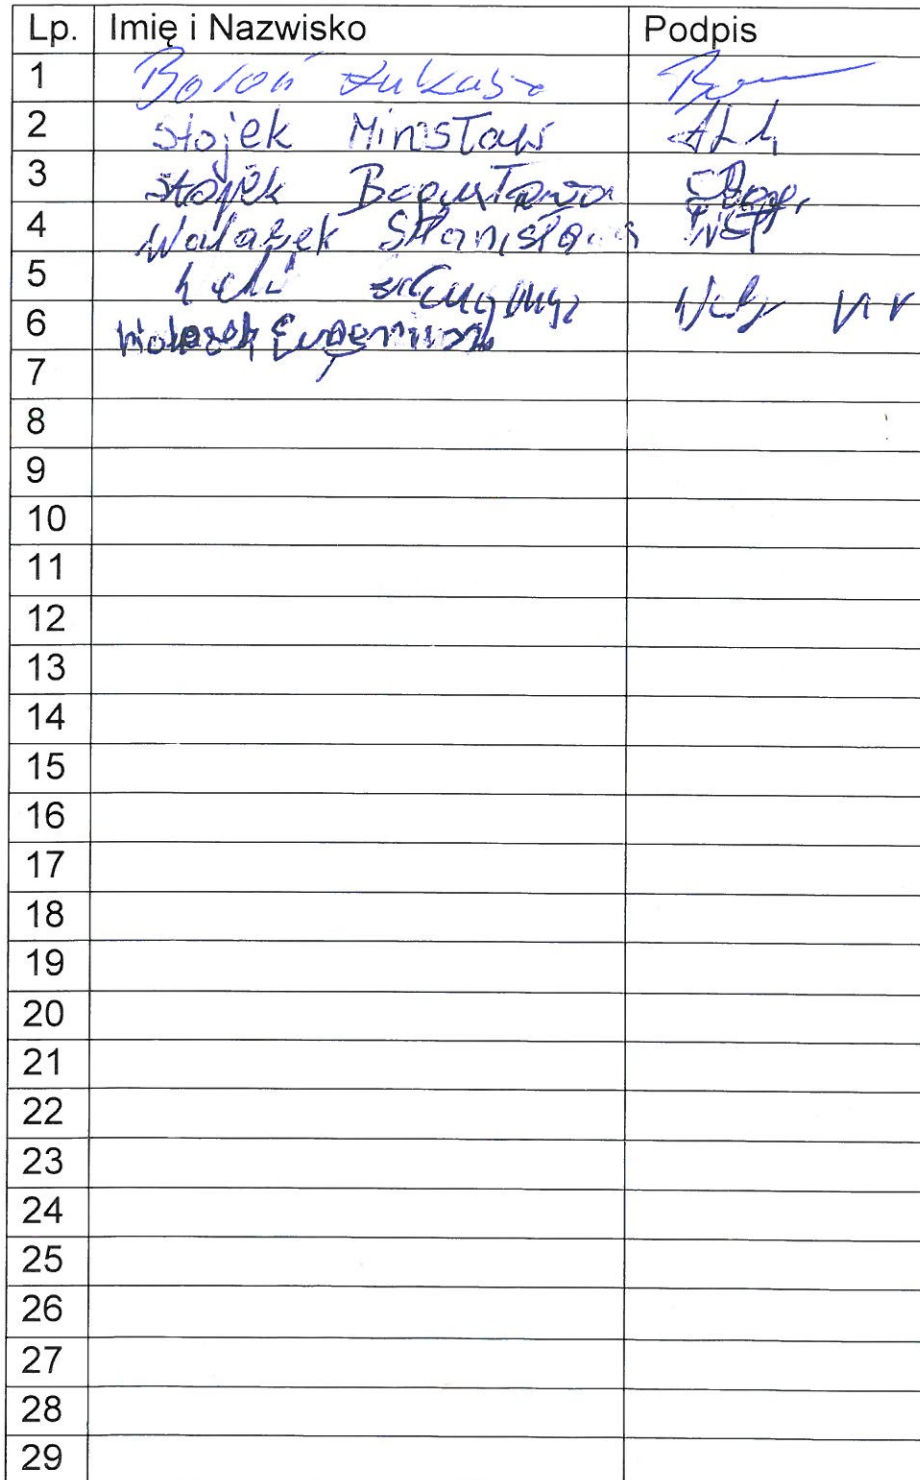 Lp. Imię i Nazwisko Podpis
1 Bołoń Łukasz
2 Stojek Mirosław
3 Stojek Bogusława
4 Walaszek Stanisława
5
6 Eugeniusz
7
8
9
10
11
12
13
14
15
16
17
18
19
20
21
22
23
24
25
26
27
28
29